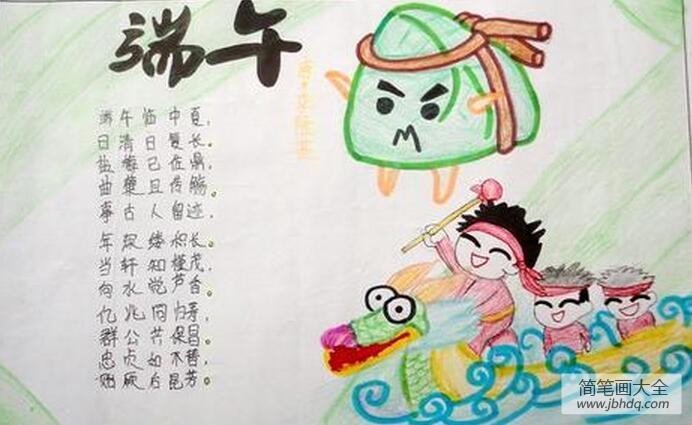 端午
唐·李隆基
端午临中夏,
日清日复长。
盐梅已佐鼎,
曲糵且传觞。
事古人留迹,
年深缕积长。
当轩知槿茂,
向水觉芦香。
亿兆同归寿,
群公共保昌。
忠贞如不替,
贻厥后昆芳。
简笔画大全
www.jbhdq.com